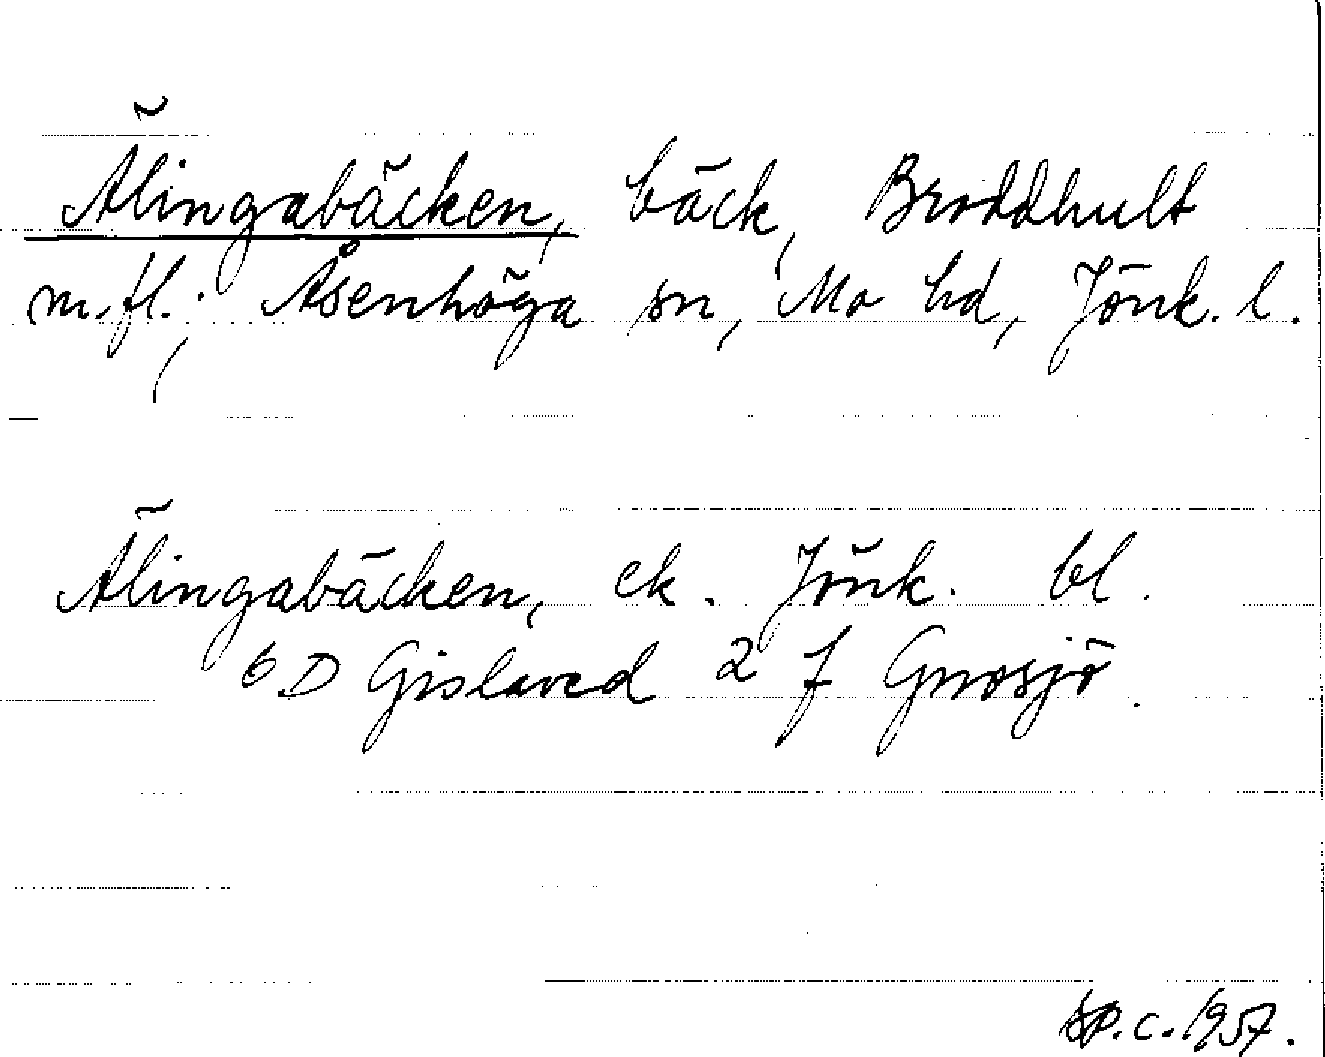 Älingabäcken, bäck, Broddhult
m.fl.; Åsenhöga sn, Mo hd, Jönk. l.
Älingabäcken, ek. Jönk. bl.
6 D Gislaved 2 f Gnosjö.
c. 1957.